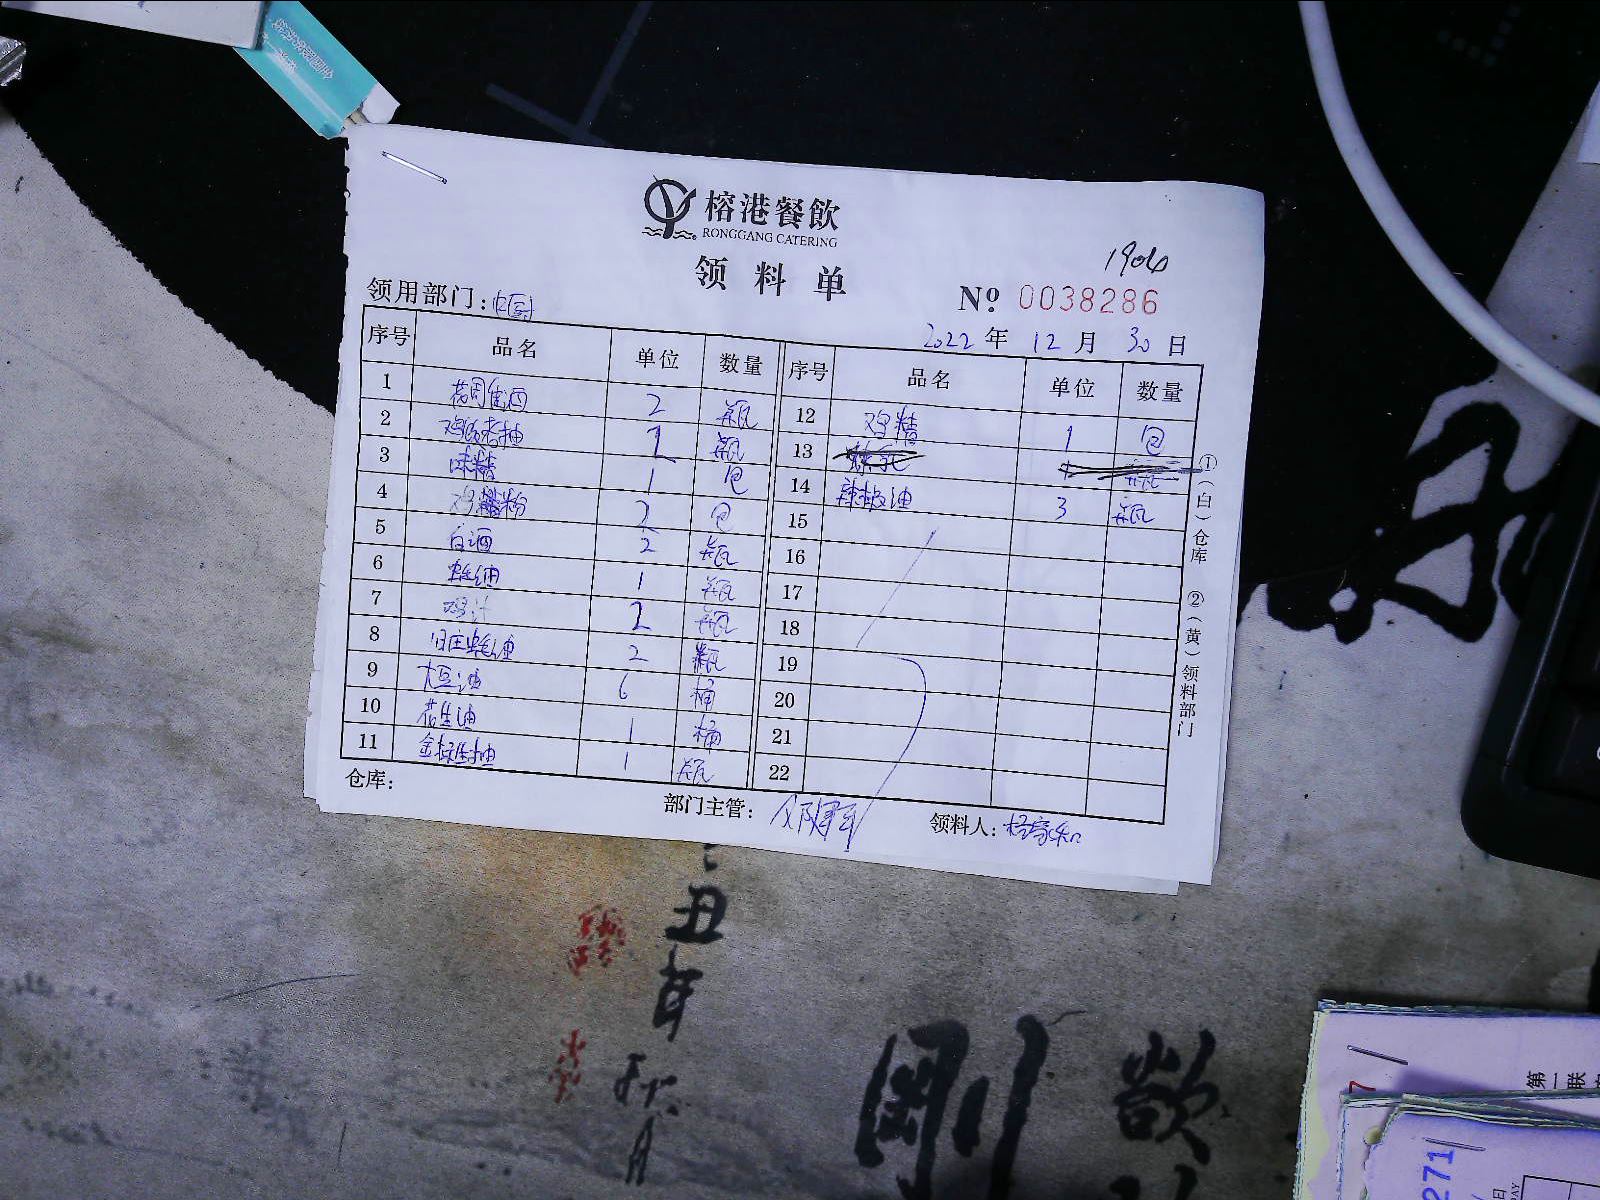 榕港餐飲
RONGGANG CATERING
领料单
1906
领用部门：中厨
№ 0038286
2022年12月30日
序号 品名 单位 数量 序号 品名 单位 数量
1 花雕酒 2 瓶 12 鸡精 1 包
2 老抽 1 瓶 13
3 味精 1 包 14 辣椒油 3 瓶
4 鸡粉 2 包 15
5 白酒 2 瓶 16
6 蚝油 1 瓶 17
7 鸡汁 2 瓶 18
8 旧庄蚝油 2 瓶 19
9 大豆油 6 桶 20
10 花生油 1 桶 21
11 金标生抽 1 瓶 22
①（白）仓库 ②（黄）领料部门
仓库： 部门主管： 领料人：
丑年
秋月
剛
欲
第一联
271